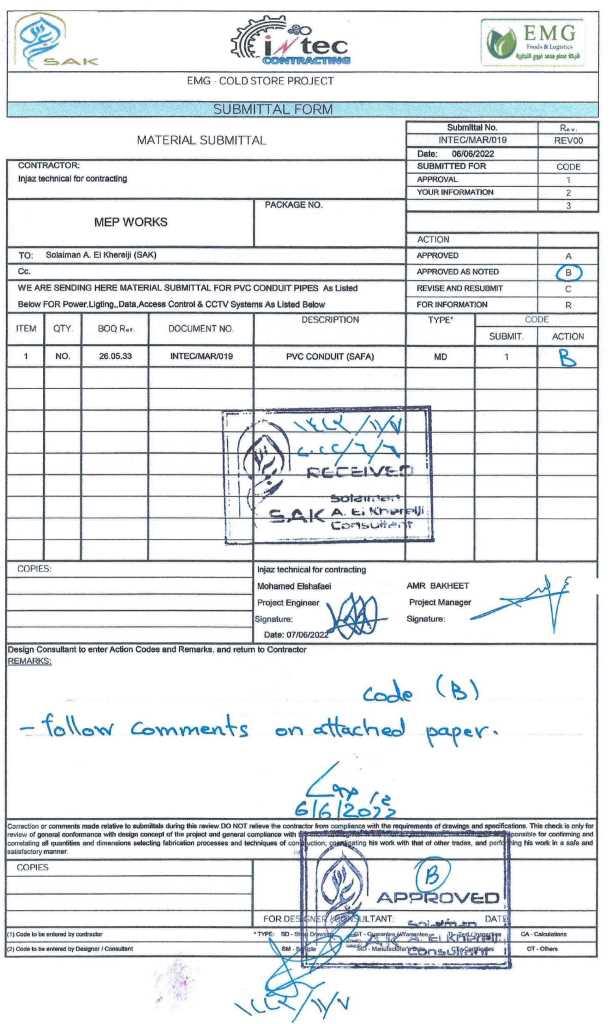 SAK
intec
CONTRACTING
EMG
Foods & Logistics
EMG - COLD STORE PROJECT
SUBMITTAL FORM
MATERIAL SUBMITTAL
Submittal No. Rev.
INTEC/MAR/019 REV00
Date: 06/06/2022
CONTRACTOR:
Injaz technical for contracting
SUBMITTED FOR CODE
APPROVAL 1
YOUR INFORMATION 2
3
MEP WORKS
PACKAGE NO.
ACTION
TO: Solaiman A. El Khereiji (SAK)
APPROVED A
Cc.
APPROVED AS NOTED B
WE ARE SENDING HERE MATERIAL SUBMITTAL FOR PVC CONDUIT PIPES As Listed
REVISE AND RESUBMIT C
Below FOR Power,Ligting,,Data,Access Control & CCTV Systems As Listed Below
FOR INFORMATION R
ITEM QTY. BOQ Ref. DOCUMENT NO. DESCRIPTION TYPE* CODE
SUBMIT. ACTION
1 NO. 26.05.33 INTEC/MAR/019 PVC CONDUIT (SAFA) MD 1 B
RECEIVED
Solaiman
SAK A. El Khereiji
Consultant
COPIES:
Injaz technical for contracting
Mohamed Elshafaei AMR BAKHEET
Project Engineer Project Manager
Signature: Signature:
Date: 07/06/2022
Design Consultant to enter Action Codes and Remarks, and return to Contractor
REMARKS:
Code (B)
- follow comments on attached paper.
6/6/2022
Correction or comments made relative to submittals during this review DO NOT relieve the contractor from compliance with the requirements of drawings and specifications. This check is only for
review of general conformance with design concept of the project and general compliance with for confirming and
correlating all quantities and dimensions selecting fabrication processes and techniques of construction; his work with that of other trades, and performing his work in a safe and
satisfactory manner
COPIES
B
APPROVED
FOR DESIGNER / CONSULTANT: DATE
Solaiman
SAK A. El Khereiji
Consultant
(1) Code to be entered by contractor * TYPE: SD - Shop Drawing CA - Calculations
(2) Code to be entered by Designer / Consultant SM - Sample OT - Others